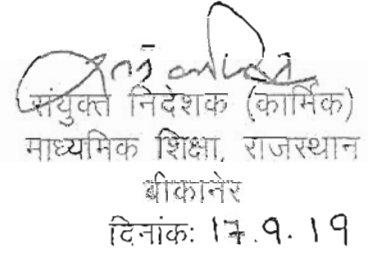 संयुक्त निदेशक (कार्मिक)
माध्यमिक शिक्षा, राजस्थान
बीकानेर
दिनांक: 17.9.19